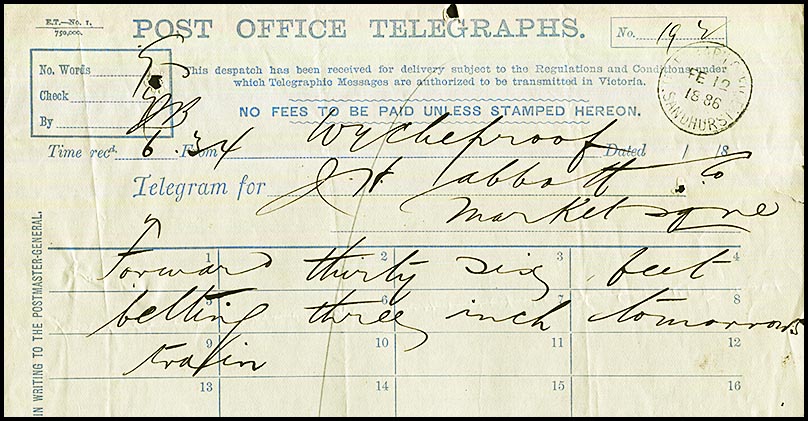 E.T.—No. 1.
750,000.
POST OFFICE TELEGRAPHS.
No. 19 2
No. Words
Check
By
This despatch has been received for delivery subject to the Regulations and Conditions under
which Telegraphic Messages are authorized to be transmitted in Victoria.
NO FEES TO BE PAID UNLESS STAMPED HEREON.
FE 12
1886
SANDHURST
Time recd. 6.34 From Wycheproof Dated / /18
Telegram for J H Abbott & Co
Market Sqre
IN WRITING TO THE POSTMASTER-GENERAL.
1 2 3 4
Forward thirty six feet
5 6 7 8
belting three inch tomorrows
9 10 11 12
train
13 14 15 16